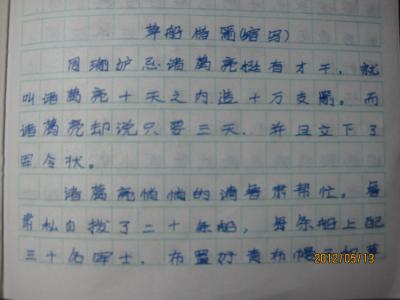 草船借箭(缩写)
周瑜妒忌诸葛亮挺有才干，就
叫诸葛亮十天之内造十万支箭。而
诸葛亮却说只要三天，并且立下了
军令状。
诸葛亮悄悄的请鲁肃帮忙。鲁
肃私自拨了二十条船，每条船上配
三十名军士，布置好青布幔子和草
2012/05/13